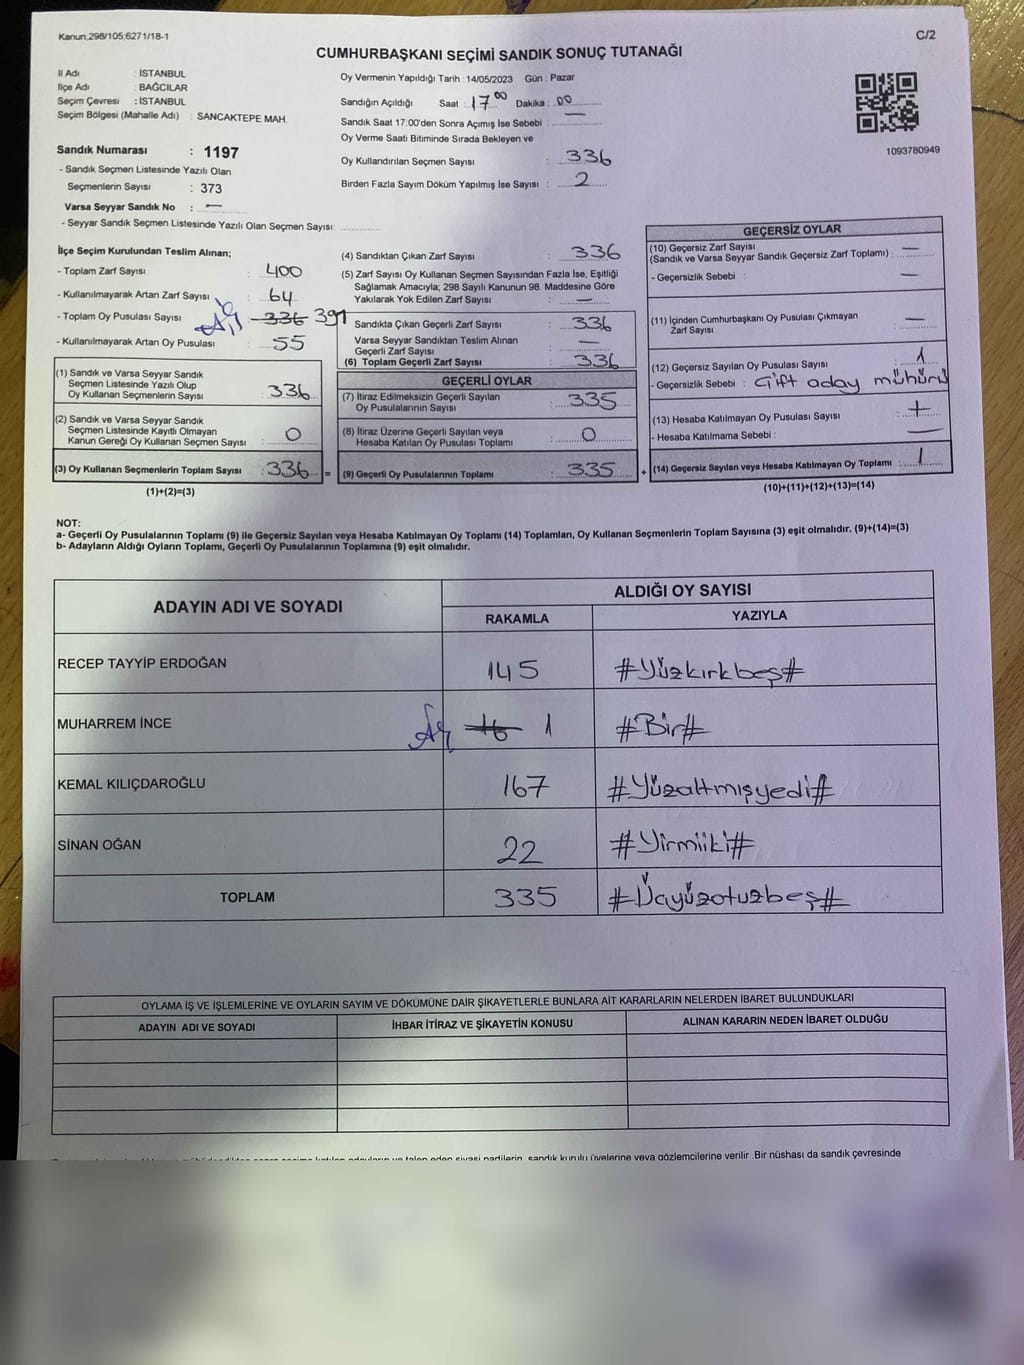 Kanun:298/105;6271/18-1
C/2
CUMHURBAŞKANI SEÇİMİ SANDIK SONUÇ TUTANAĞI
İl Adı : İSTANBUL
İlçe Adı : BAĞCILAR
Seçim Çevresi : İSTANBUL
Seçim Bölgesi (Mahalle Adı) : SANCAKTEPE MAH.
Oy Vermenin Yapıldığı Tarih : 14/05/2023 Gün : Pazar
Sandığın Açıldığı Saat : 17 00 Dakika : 00
Sandık Saat 17:00'den Sonra Açımış İse Sebebi : —
Oy Verme Saati Bitiminde Sırada Bekleyen ve
Oy Kullandırılan Seçmen Sayısı : 336
Birden Fazla Sayım Döküm Yapılmış İse Sayısı : 2
1093780949
Sandık Numarası : 1197
- Sandık Seçmen Listesinde Yazılı Olan
Seçmenlerin Sayısı : 373
Varsa Seyyar Sandık No : —
- Seyyar Sandık Seçmen Listesinde Yazılı Olan Seçmen Sayısı:
İlçe Seçim Kurulundan Teslim Alınan;
- Toplam Zarf Sayısı : 400
- Kullanılmayarak Artan Zarf Sayısı : 64
- Toplam Oy Pusulası Sayısı 336 391
- Kullanılmayarak Artan Oy Pusulası : 55
(1) Sandık ve Varsa Seyyar Sandık
Seçmen Listesinde Yazılı Olup
Oy Kullanan Seçmenlerin Sayısı : 336
(2) Sandık ve Varsa Seyyar Sandık
Seçmen Listesinde Kayıtlı Olmayan
Kanun Gereği Oy Kullanan Seçmen Sayısı : 0
(3) Oy Kullanan Seçmenlerin Toplam Sayısı : 336 =
(1)+(2)=(3)
(4) Sandıktan Çıkan Zarf Sayısı : 336
(5) Zarf Sayısı Oy Kullanan Seçmen Sayısından Fazla İse, Eşitliği
Sağlamak Amacıyla; 298 Sayılı Kanunun 98. Maddesine Göre
Yakılarak Yok Edilen Zarf Sayısı : —
Sandıkta Çıkan Geçerli Zarf Sayısı : 336
Varsa Seyyar Sandıktan Teslim Alınan
Geçerli Zarf Sayısı : —
(6) Toplam Geçerli Zarf Sayısı : 336
GEÇERLİ OYLAR
(7) İtiraz Edilmeksizin Geçerli Sayılan
Oy Pusulalarının Sayısı : 335
(8) İtiraz Üzerine Geçerli Sayılan veya
Hesaba Katılan Oy Pusulası Toplamı : 0
(9) Geçerli Oy Pusulalarının Toplamı : 335 +
GEÇERSİZ OYLAR
(10) Geçersiz Zarf Sayısı
(Sandık ve Varsa Seyyar Sandık Geçersiz Zarf Toplamı) : —
- Geçersizlik Sebebi : —
(11) İçinden Cumhurbaşkanı Oy Pusulası Çıkmayan
Zarf Sayısı : —
(12) Geçersiz Sayılan Oy Pusulası Sayısı : 1
- Geçersizlik Sebebi : Çift aday mühürü
(13) Hesaba Katılmayan Oy Pusulası Sayısı :
- Hesaba Katılmama Sebebi : —
(14) Geçersiz Sayılan veya Hesaba Katılmayan Oy Toplamı : 1
(10)+(11)+(12)+(13)=(14)
NOT:
a- Geçerli Oy Pusulalarının Toplamı (9) ile Geçersiz Sayılan veya Hesaba Katılmayan Oy Toplamı (14) Toplamları, Oy Kullanan Seçmenlerin Toplam Sayısına (3) eşit olmalıdır. (9)+(14)=(3)
b- Adayların Aldığı Oyların Toplamı, Geçerli Oy Pusulalarının Toplamına (9) eşit olmalıdır.
ADAYIN ADI VE SOYADI
ALDIĞI OY SAYISI
RAKAMLA YAZIYLA
RECEP TAYYİP ERDOĞAN 145 #Yüzkırkbeş#
MUHARREM İNCE 16 1 #Bir#
KEMAL KILIÇDAROĞLU 167 #Yüzaltmışyedi#
SİNAN OĞAN 22 #Yirmiiki#
TOPLAM 335 #Üçyüzotuzbeş#
OYLAMA İŞ VE İŞLEMLERİNE VE OYLARIN SAYIM VE DÖKÜMÜNE DAİR ŞİKAYETLERLE BUNLARA AİT KARARLARIN NELERDEN İBARET BULUNDUKLARI
ADAYIN ADI VE SOYADI İHBAR İTİRAZ VE ŞİKAYETİN KONUSU ALINAN KARARIN NEDEN İBARET OLDUĞU
siyasi partilerin, sandık kurulu üyelerine veya gözlemcilerine verilir .Bir nüshası da sandık çevresinde